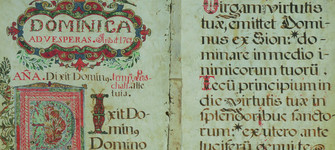 DOMINICA
AD VESPERAS.
AÑA. Dixit Dominus,
Dixit Do-
minus
Domino
Virgam virtutis
tuæ, emittet Domi-
nus ex Sion: do-
minare in medio i-
nimicorum tuorũ.
Tecũ principium in
die virtutis tuæ in
splendoribus sancto
rum: ex utero ante
luciferũ genui te.